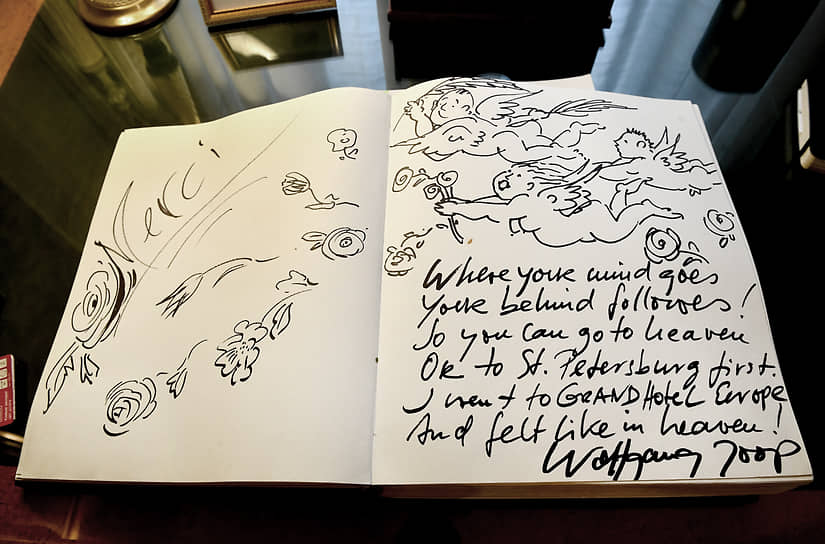 Merci
Where your mind goes
your behind followes!
So you can go to heaven
Or to St. Petersburg first.
I went to GRAND Hotel Europe
And felt like in heaven!
Wolfgang Joop